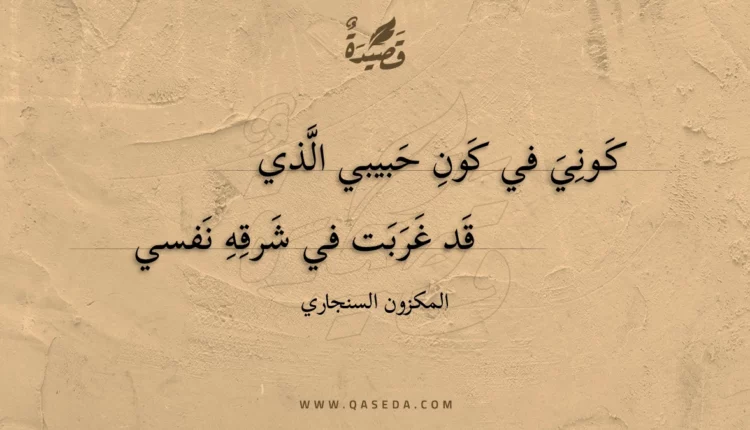 قَصِيدَةٌ
كَونِيَ في كَونِ حَبيبي الَّذي
قَد غَرَبَت في شَرقِهِ نَفسي
المكزون السنجاري
WWW.QASEDA.COM